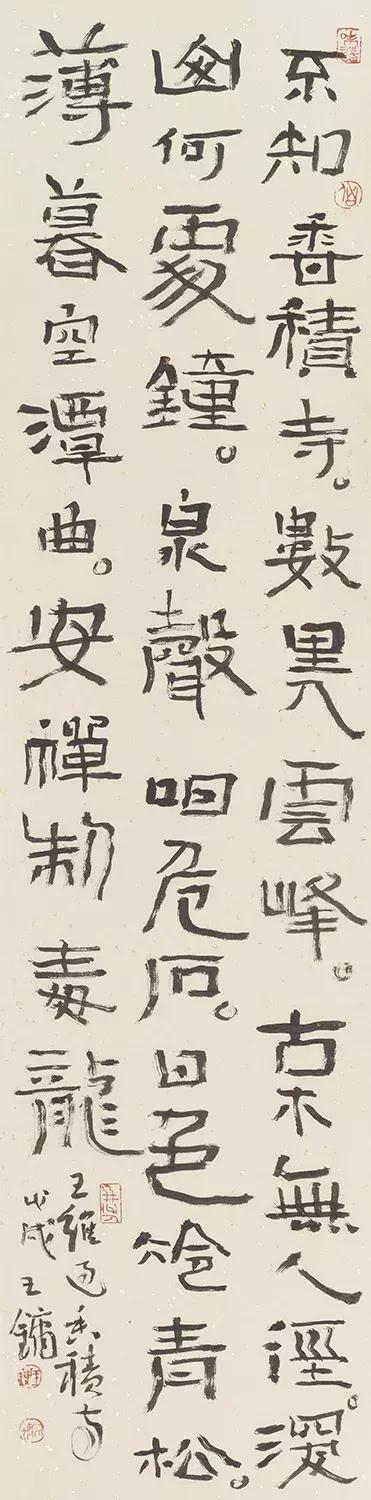 不知香積寺。數里入雲峰。古木無人徑。深
山何處鐘。泉聲咽危石。日色冷青松。
薄暮空潭曲。安禪制毒龍
王維過香積寺
戊戌王鏞